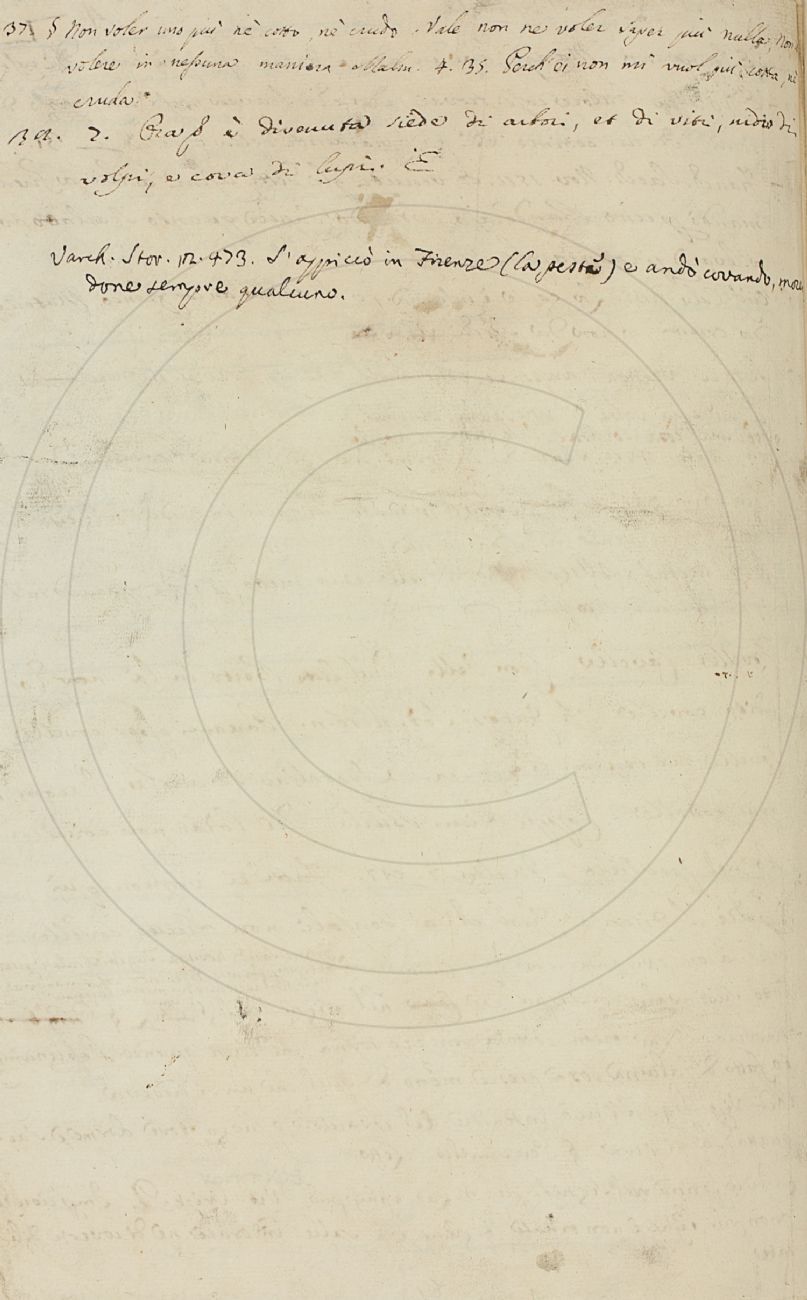 37. § Non voler uno più nè cotto, nè crudo. Vale non ne voler saper più nulla, Non
volere in nessuna maniera. Malm. 4. 35. Perch' ei non mi vuol più cotta, nè
cruda.
2. è divenuta siede di arbori, et di viti, nidio di
volpi, e cova di lupi.
Varch. Stor. 473. S'appiccò in Firenze (la peste) e andò covando, moren
done sempre qualcuno.